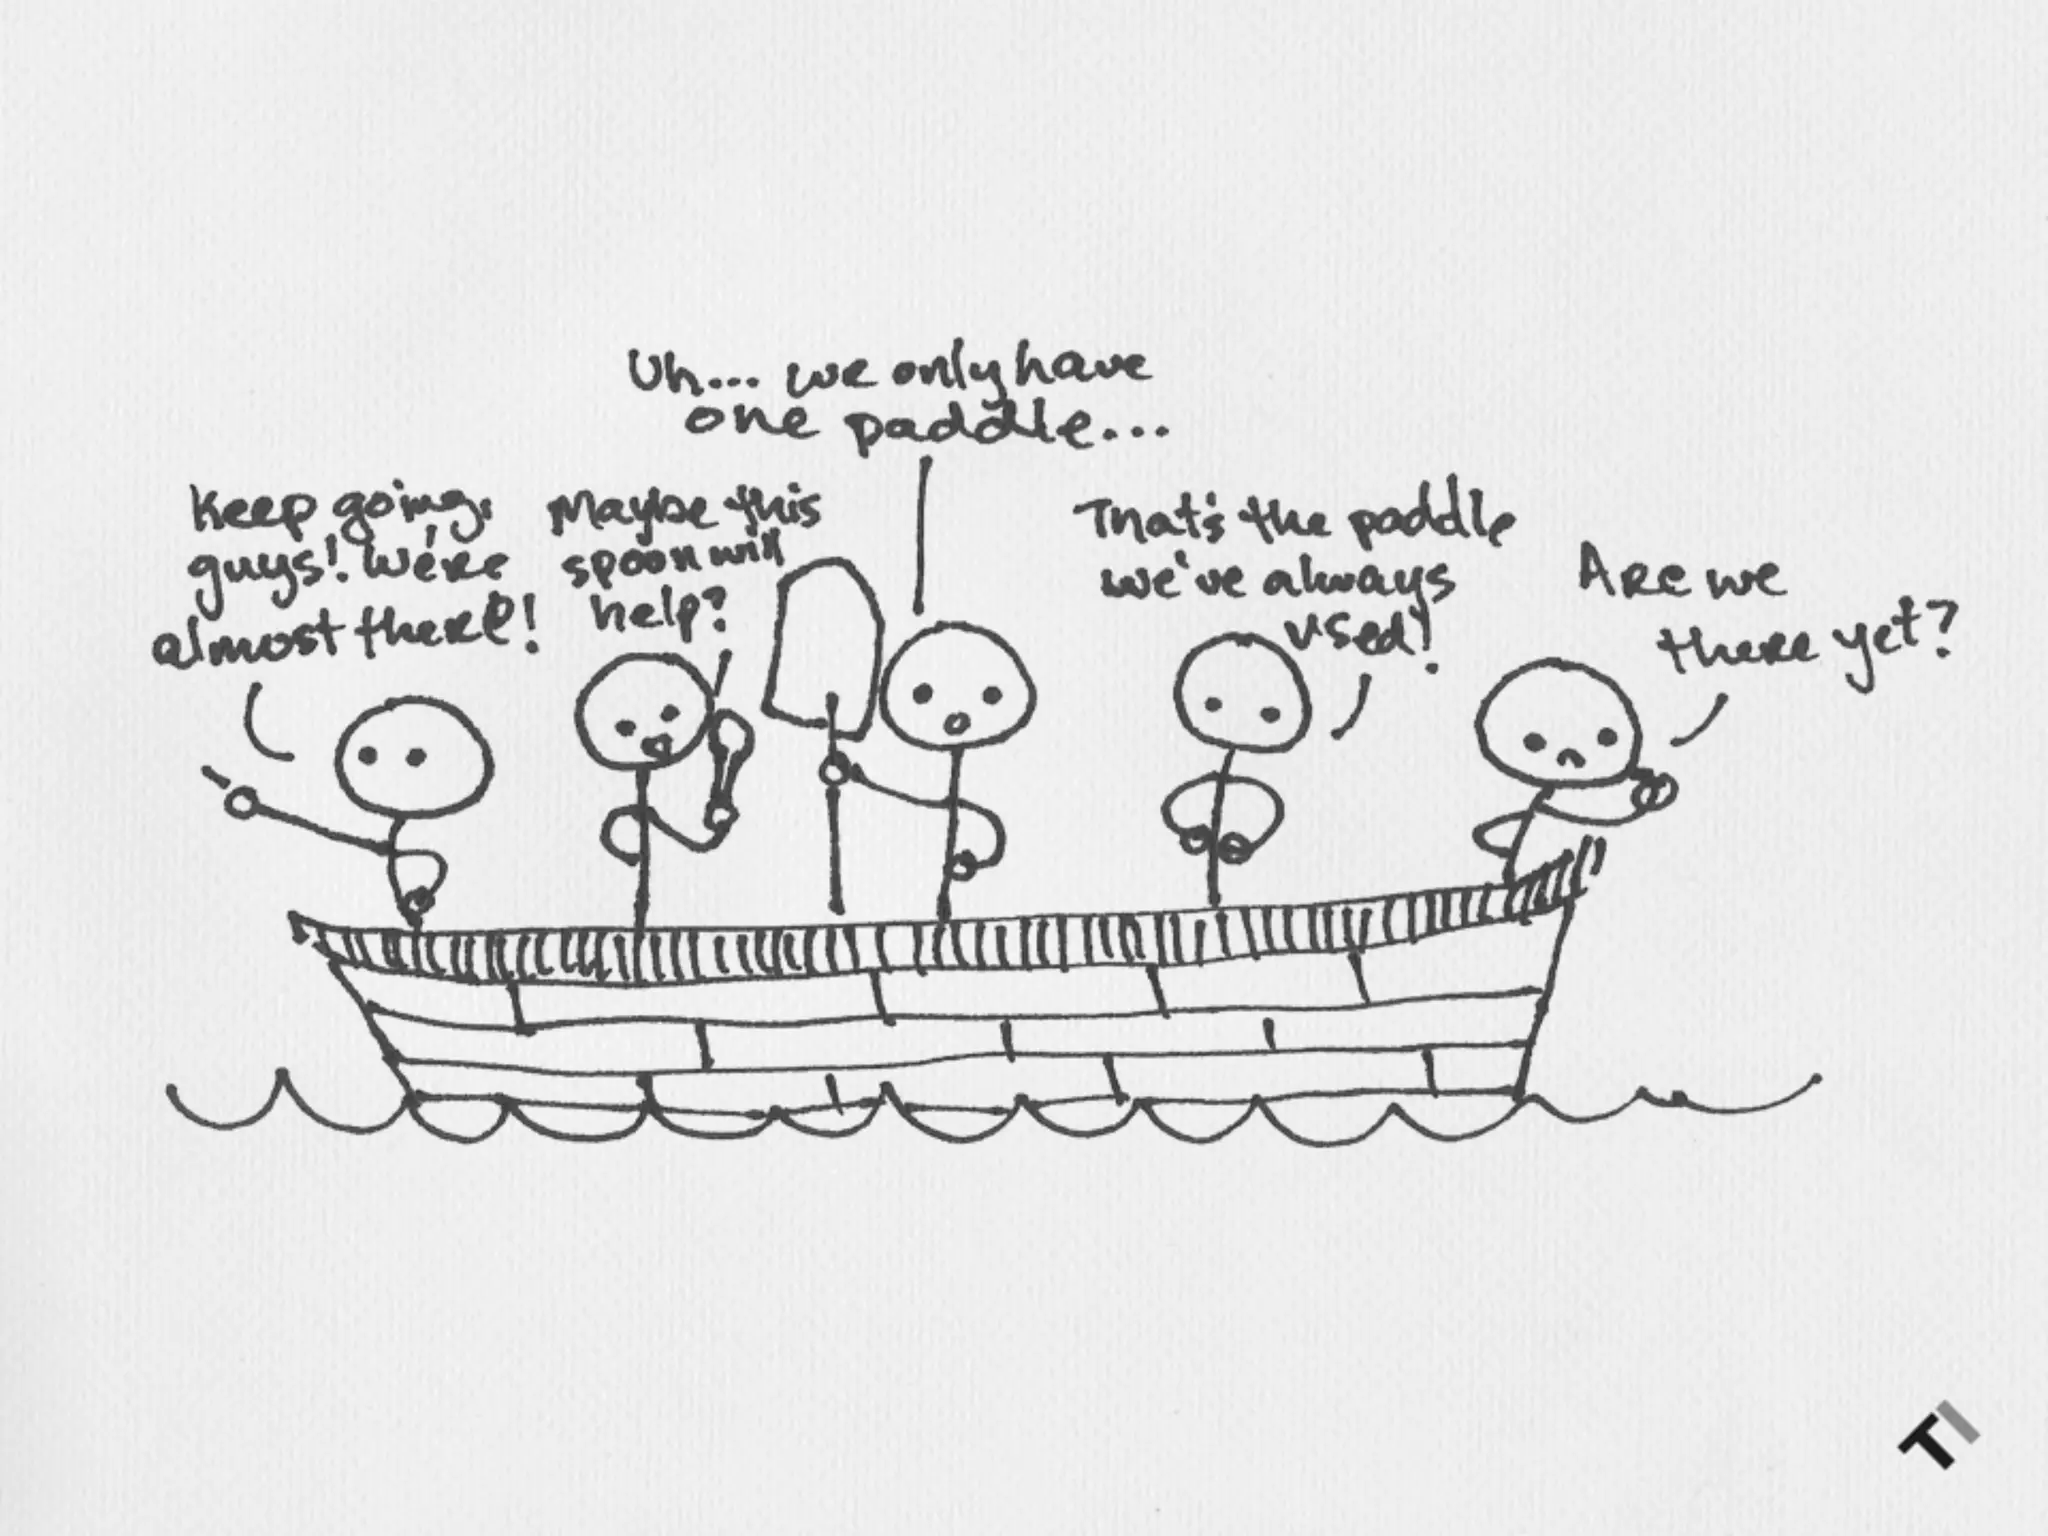 Uh... we only have
one paddle...
Keep going,
guys! We're
almost there!
Maybe this
spoon will
help?
That's the paddle
we've always
used!
Are we
there yet?
TI